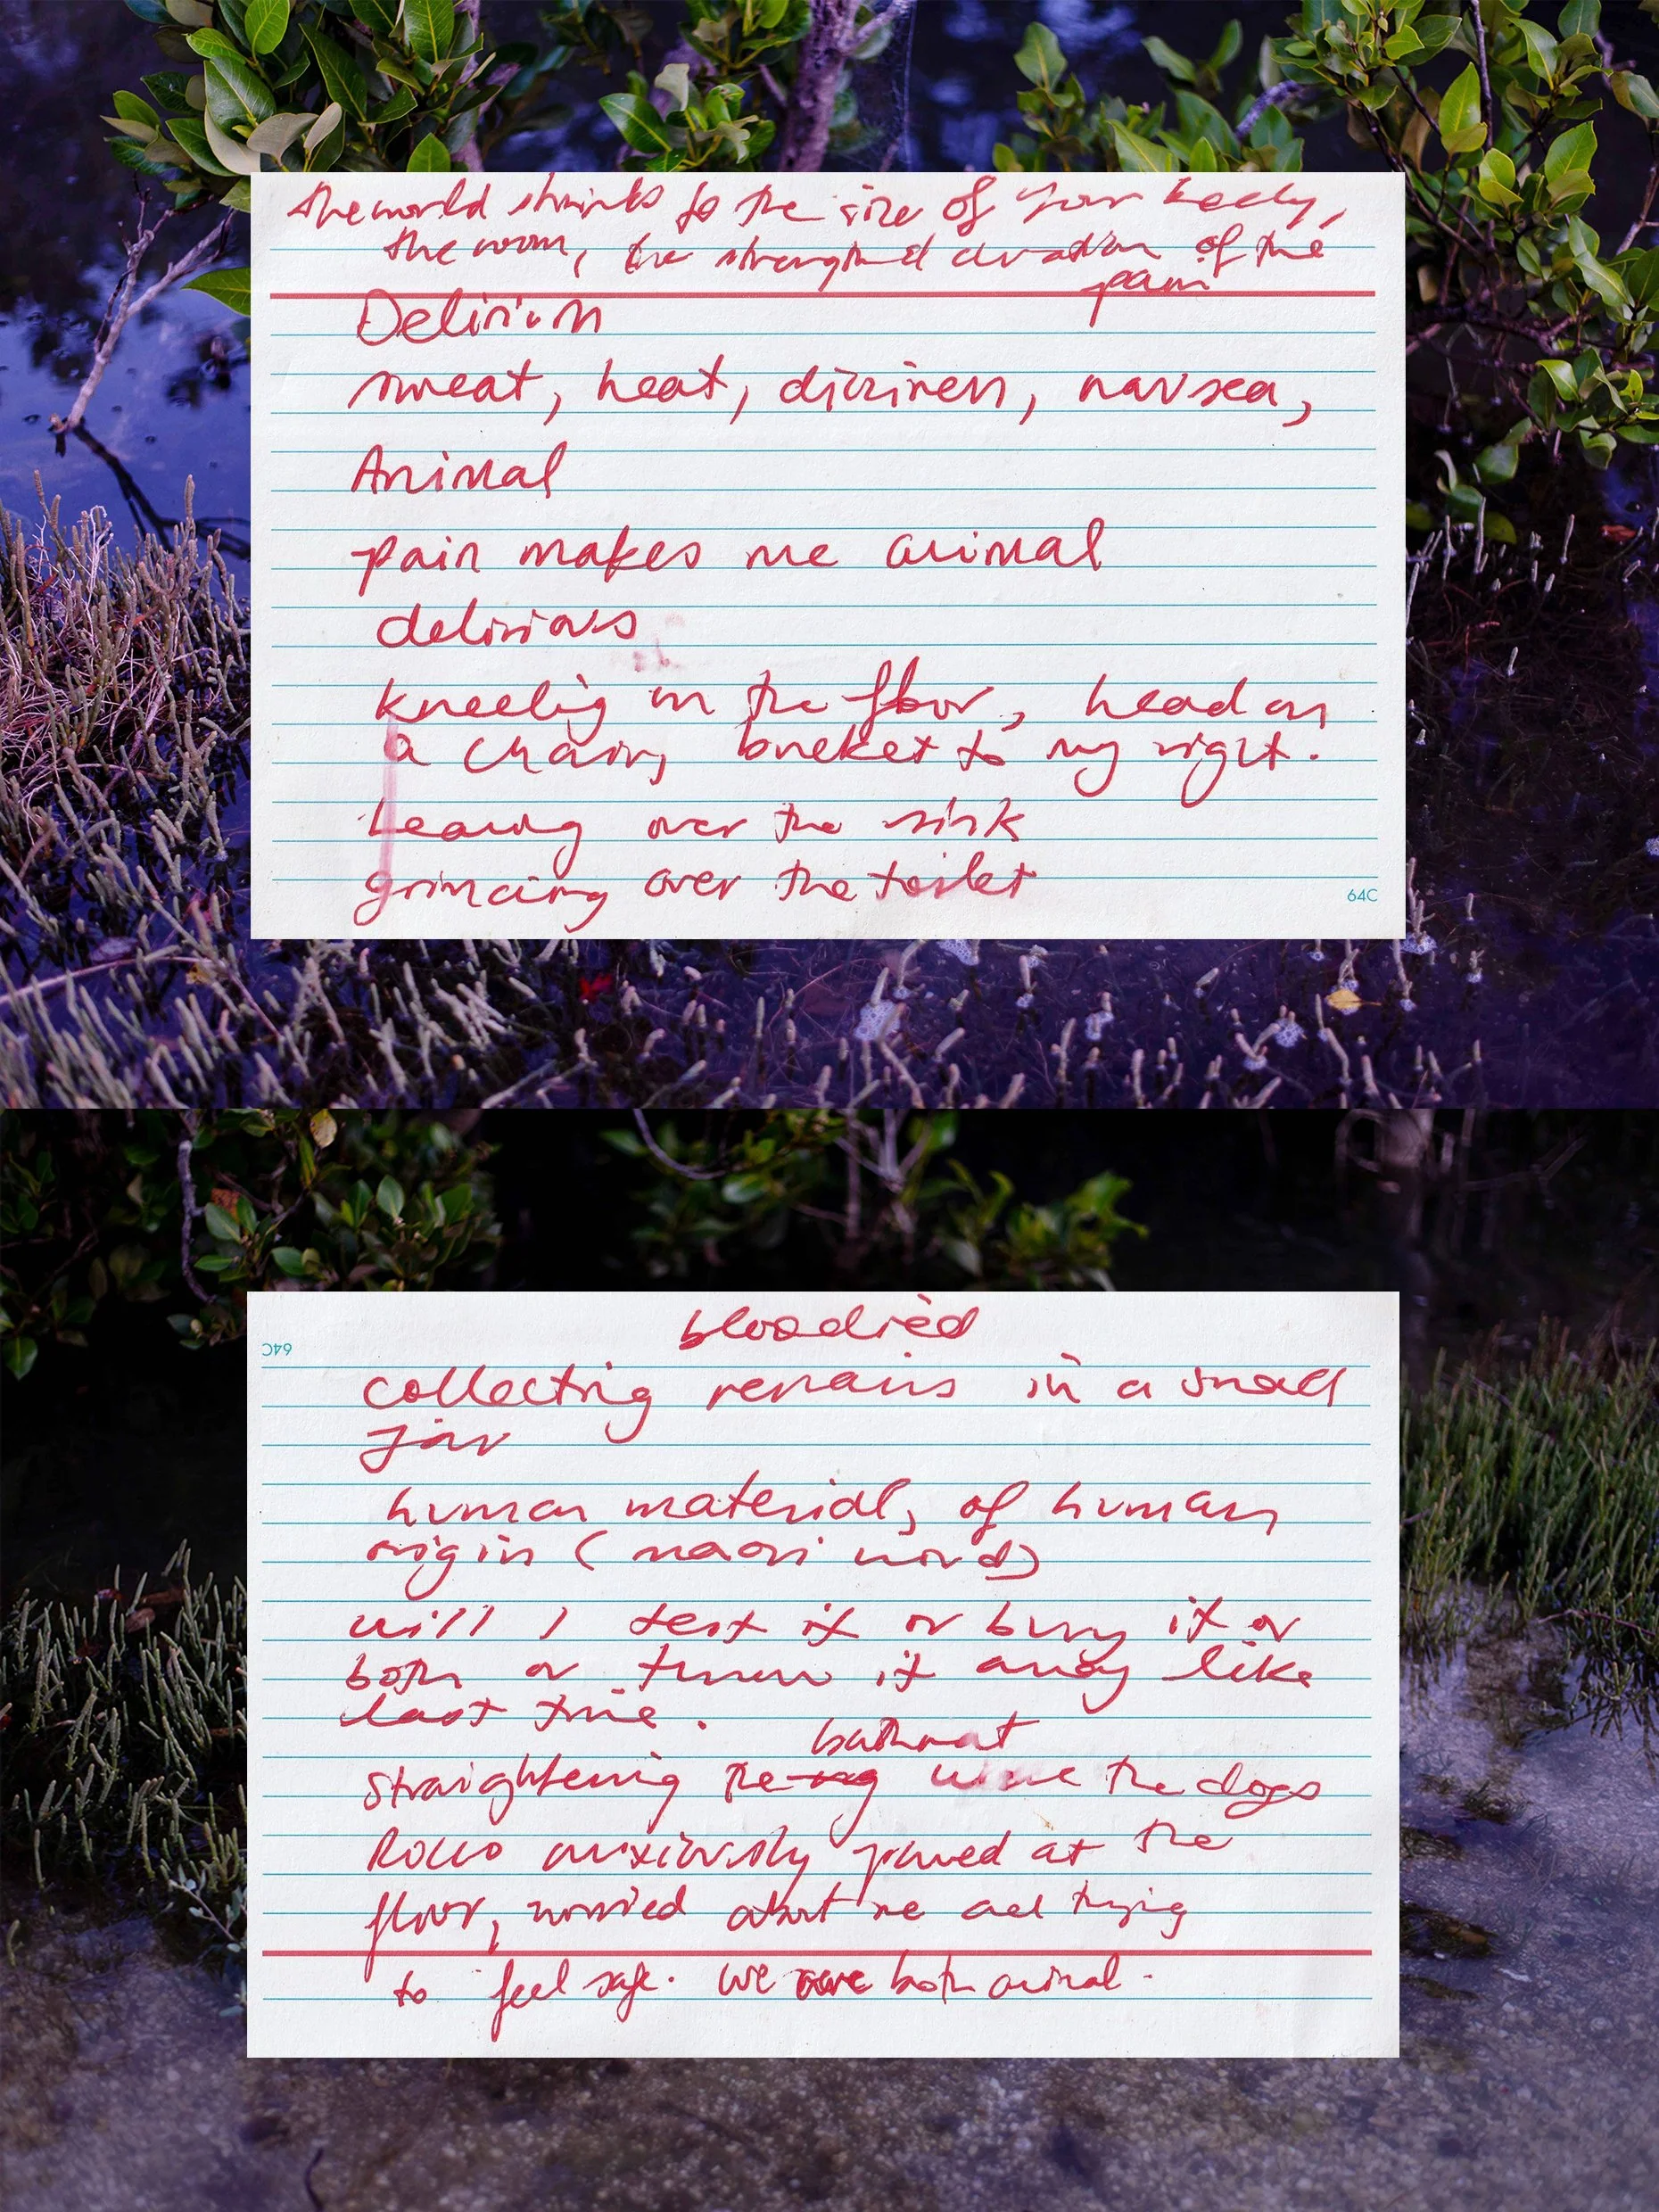 the world shrinks to the size of your body,
the room, the strengthened duration of the
pain
Delirium
sweat, heat, dizziness, nausea,
Animal
pain makes me animal
delirious
kneeling on the floor, head on
a chair, bucket to my right.
Leaning over the sink
grimacing over the toilet
64C
64C
bloodied
collecting remains in a small
jar
human material, of human
origin (maori word)
will I test it or bury it or
both or throw it away like
last time.
bathmat
straightening the rug the dogs
Rocco anxiously pawed at the
floor, worried about me and trying
to feel safe. we were both animal.